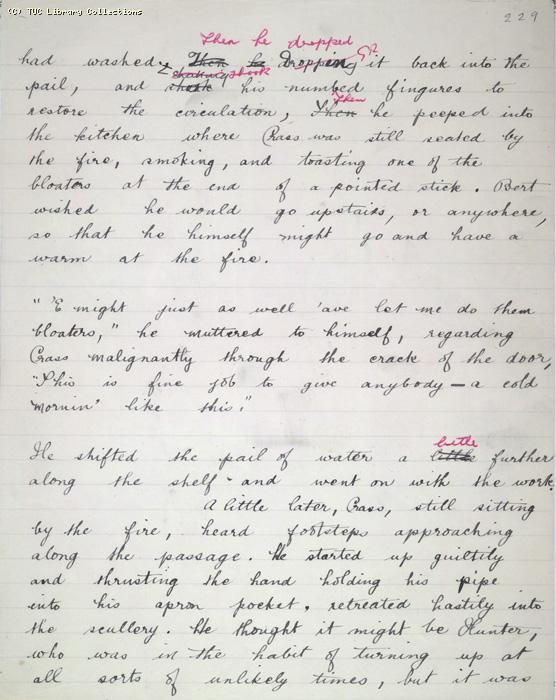 (C) TUC Library Collections
229
Then he dropped
had washed. Then he Dropping it back into the
shaking shook
pail, and shook his numbed fingures to
Then
restore the circulation, Then he peeped into
the kitchen where Crass was still seated by
the fire, smoking, and toasting one of the
bloaters at the end of a pointed stick. Bert
wished he would go upstairs, or anywhere,
so that he himself might go and have a
warm at the fire.
"'E might just as well 'ave let me do them
bloaters," he muttered to himself, regarding
Crass malignantly through the crack of the door,
"This is fine job to give anybody — a cold
mornin' like this."
little
He shifted the pail of water a little further
along the shelf and went on with the work.
A little later, Crass, still sitting
by the fire, heard footsteps approaching
along the passage. He started up guiltily
and thrusting the hand holding his pipe
into his apron pocket, retreated hastily into
the scullery. He thought it might be Hunter,
who was in the habit of turning up at
all sorts of unlikely times, but it was